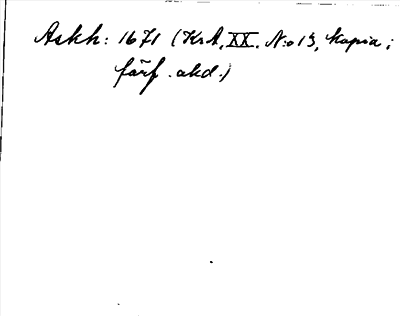 Askh: 1671 (KrA, XX. N:o 13, Kopia;
förf. akd.)